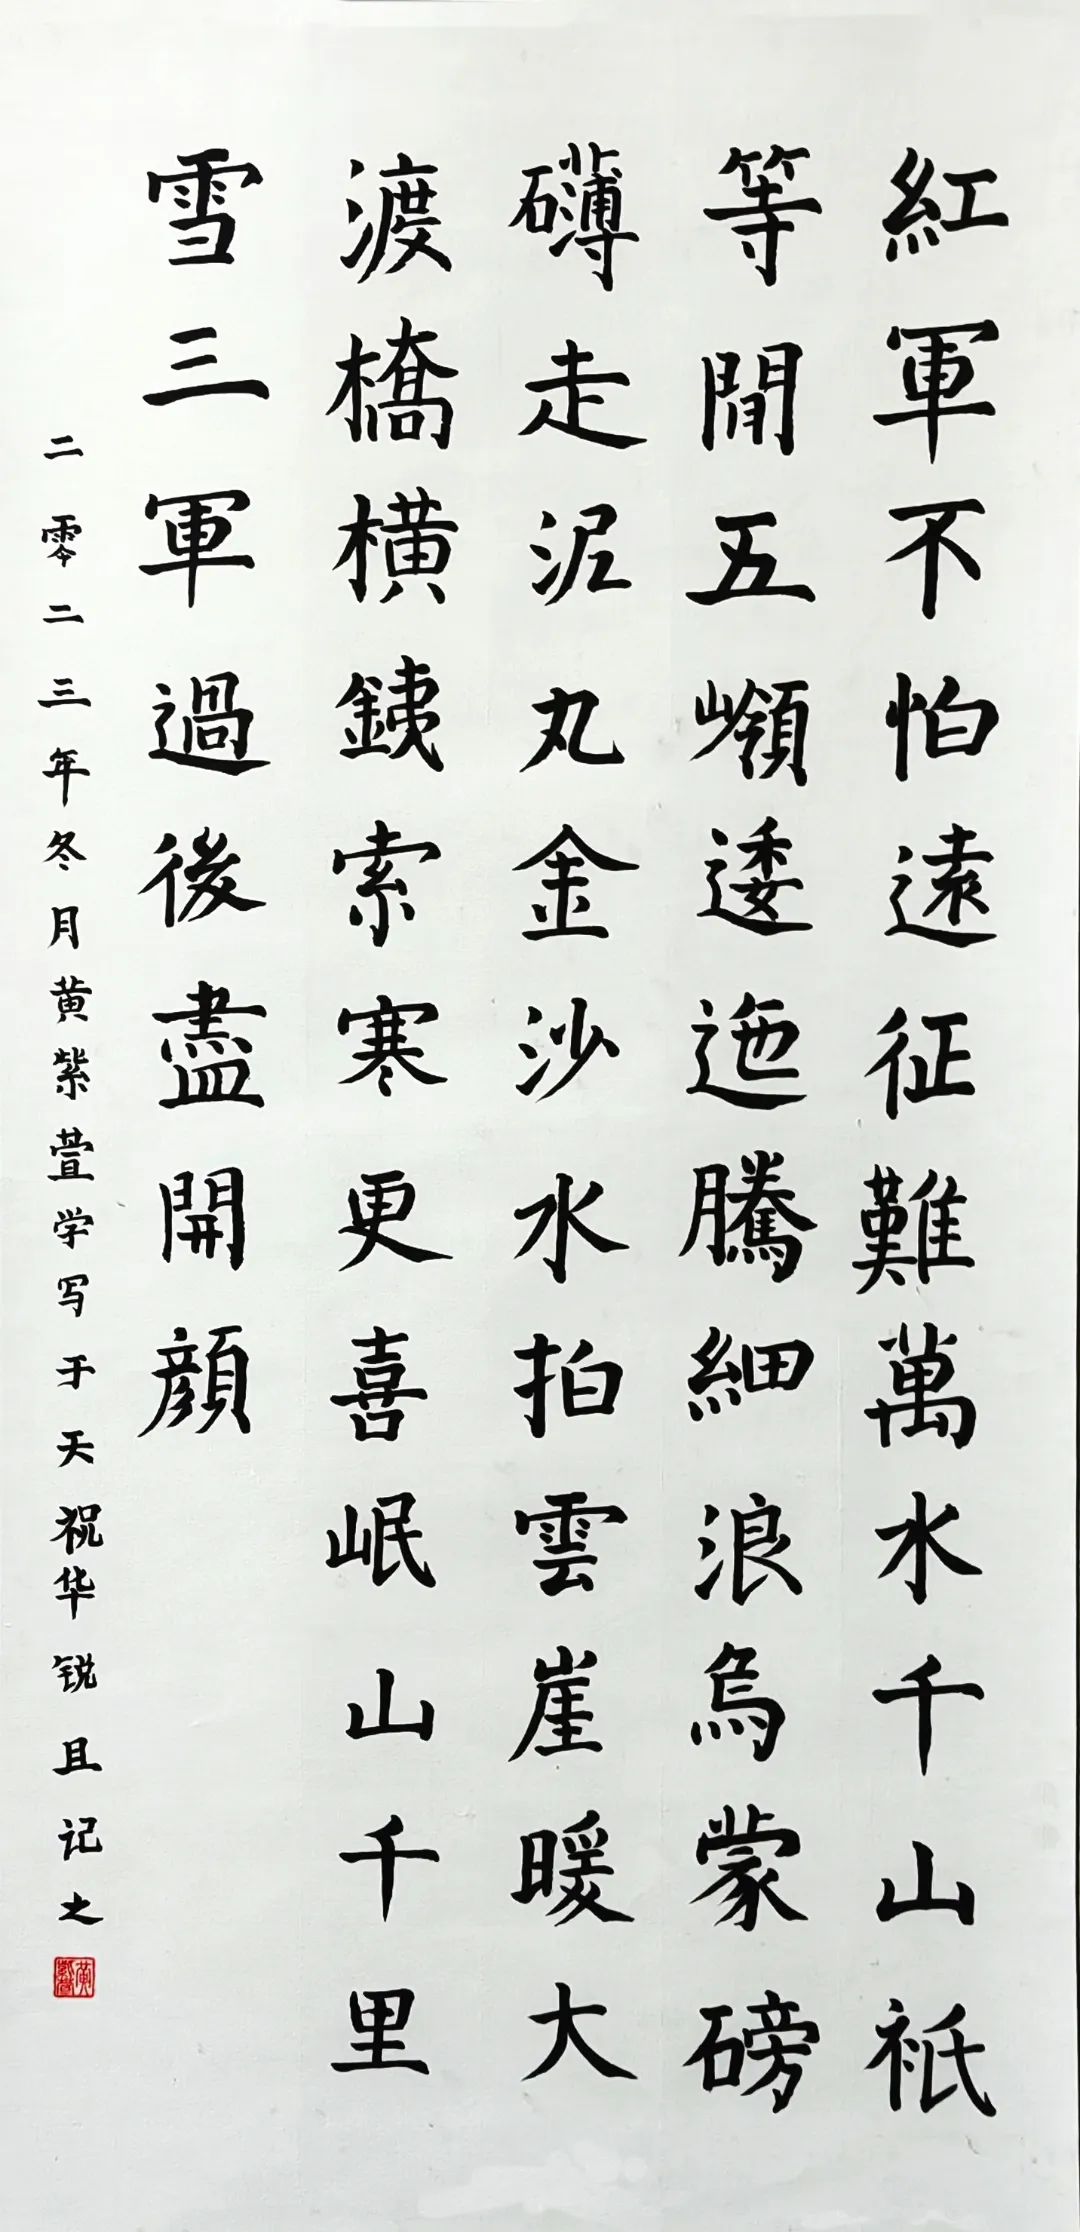 紅軍不怕遠征難萬水千山祇
等閒五嶺逶迤騰細浪烏蒙磅
礴走泥丸金沙水拍雲崖暖大
渡橋横銕索寒更喜岷山千里
雪三軍過後盡開顔
二零二三年冬月黄紫萱学写于天祝华锐且记之
黄紫萱